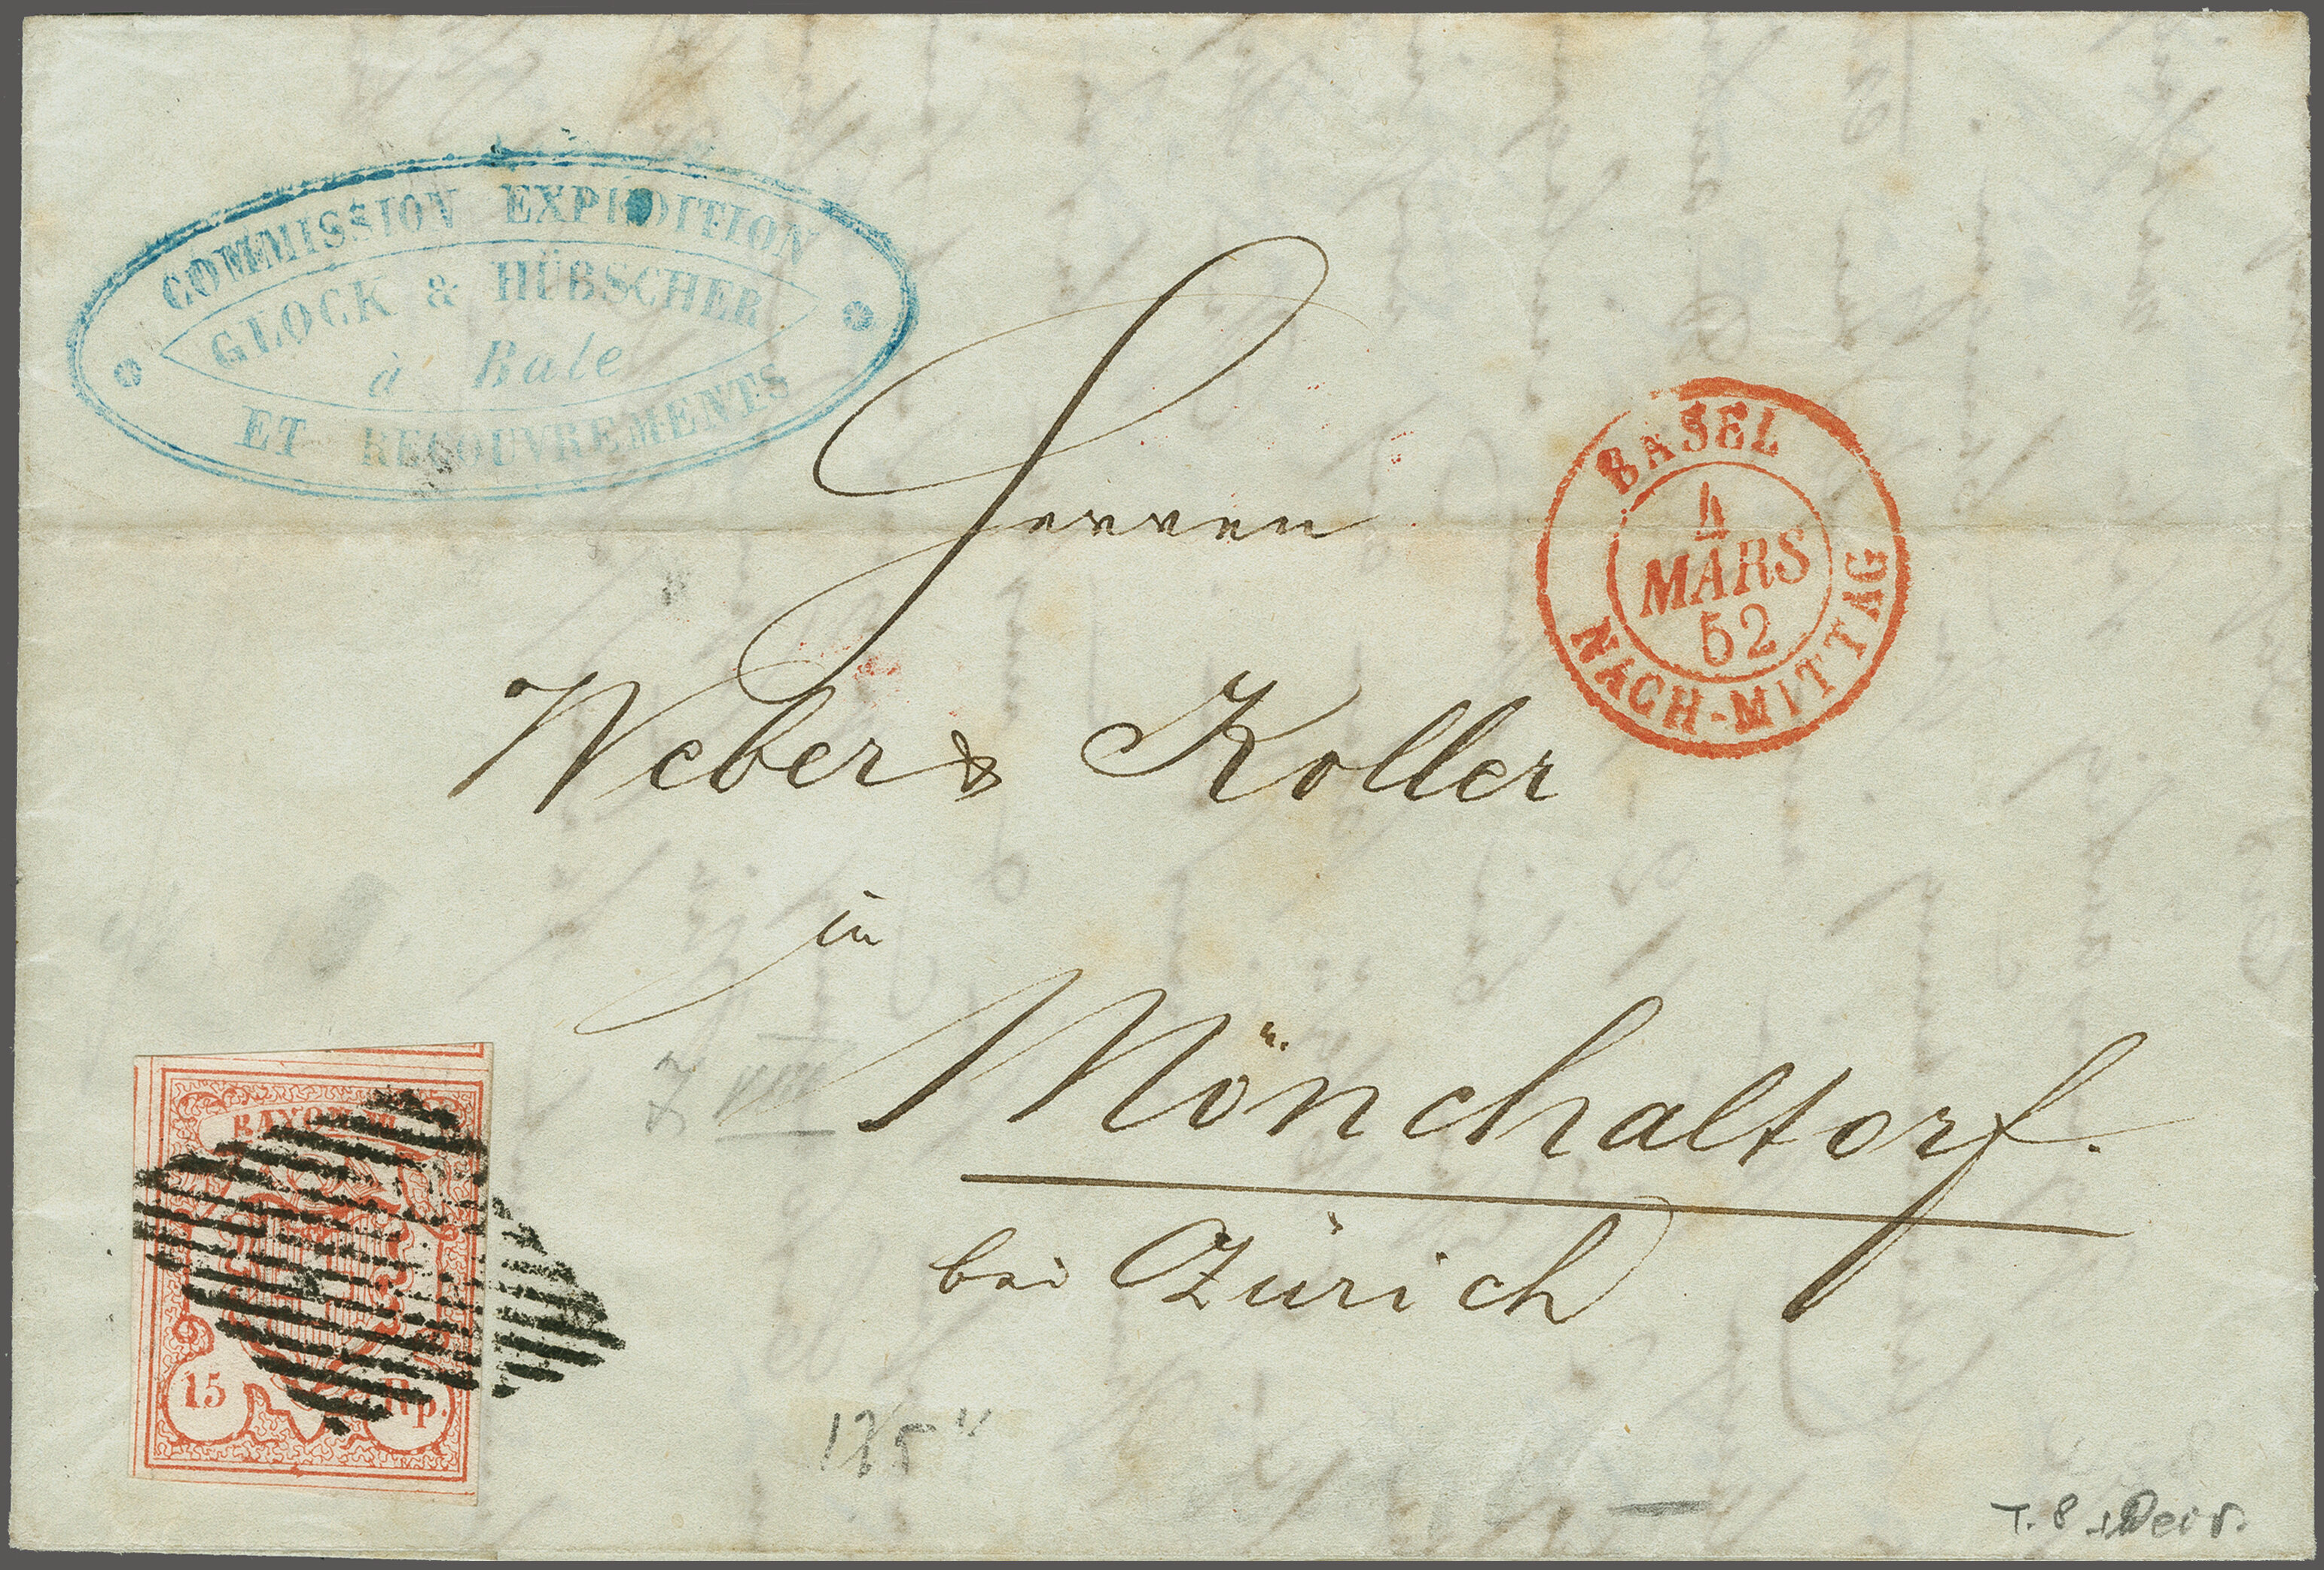 COMMISSION EXPEDITION
GLOCK & HÜBSCHER
à Bale
ET RECOUVREMENTS
BASEL
4
MARS
52
NACH-MITTAG
Herren
Weber & Koller
in
Mönchaltorf.
bei Zürich
RAYON III
15 Rp.
T. 8